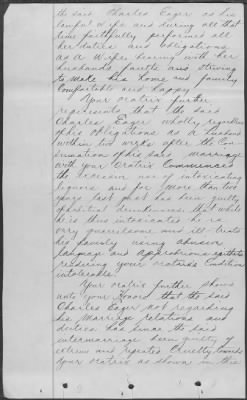 the said Charles Eager as his
lawful wife and during all that
time faithfully performed all
her duties and obligations
as a wife bearing with her
husbands faults and striving
to make his home and family
comfortable and happy
Your oratrix further
represents that the said
Charles Eager wholly regardless
of his obligations as a husband
within two weeks after the con
sumation of the said marriage
with your oratrix commenced
the excessive use of intoxicating
liquors and for more than two
years last past has been guilty
of habitual drunkenness that while
he is thus intoxicated he is
very quarrelsome and ill treats
his family using abusive
language and opprobrious epithets
rendering your oratrixs condition
intolerable.
Your oratrix further shows
unto your Honors that the said
Charles Eager not regarding
his marriage relations and
duties has since the said
intermarriage been guilty of
extreme and repeated cruelty towards
your oratrix as shown in the